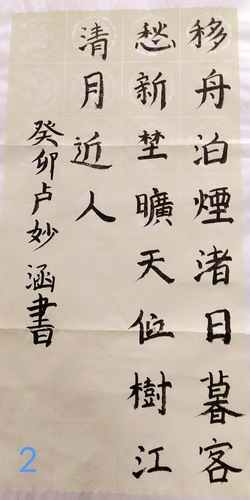 移舟泊煙渚日暮客
愁新埜曠天低樹江
清月近人
癸卯卢妙涵書
2